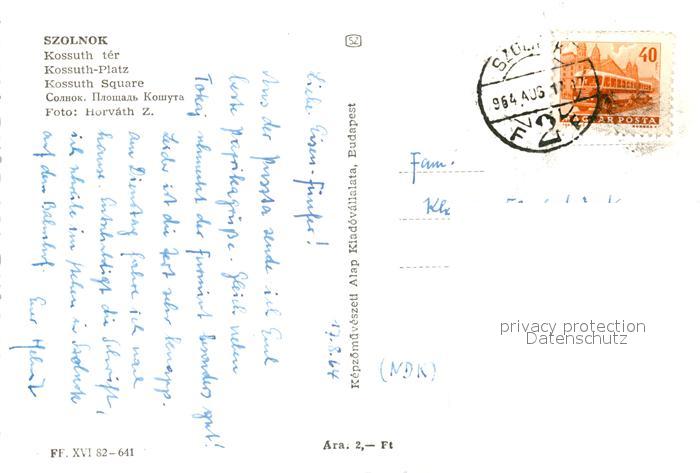 SZOLNOK
Kossuth tér
Kossuth-Platz
Kossuth Square
Солнок. Площадь Кошута
Foto: Horváth Z.
SZ
17.8.64
Liebe Eisen-Fünfer!
Aus der Puszta sende ich Euch
beste Paprikagrüße. Gleich neben
Tokaj schmeckt der Furmint besonders gut!
Leider ist die Zeit sehr knapp.
Am Dienstag fahre ich nach
Hause. Entschuldigt die Schrift,
ich schreibe im Stehen in Szolnok
auf dem Bahnhof.
Euer
Képzőművészeti Alap Kiadóvállalata, Budapest
SZOLNOK
964 AUG 17
2
40
MAGYAR POSTA
Fam.
(NDK)
privacy protection
Datenschutz
FF. XVI 82-641
Ára: 2,— Ft